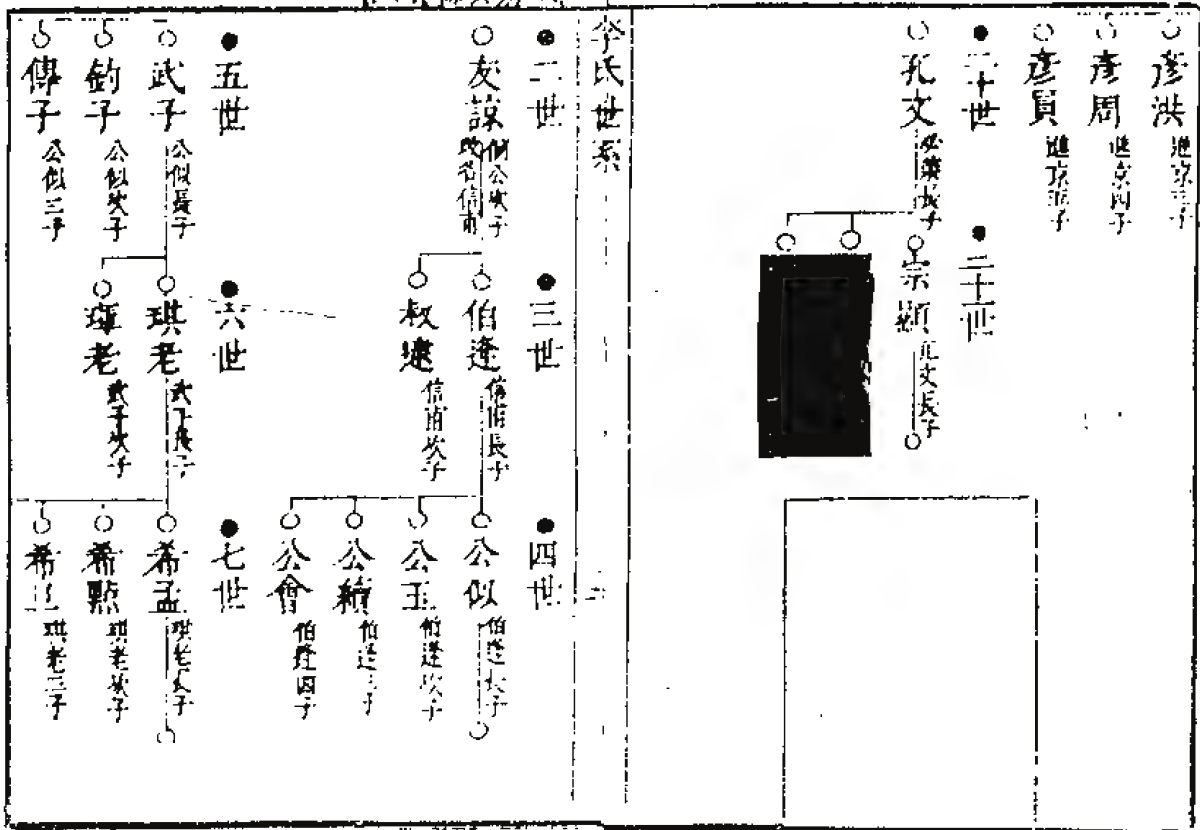 彥洪 進京三子
彥周 進京四子
彥員 進京五子
二十世
孔文 長子
二十一世
宗顯 孔文長子
李氏世系
二世
友諒 次子 改名信甫
三世
伯逢 信甫長子
叔逮 信甫次子
四世
公似 伯逢長子
公玉 伯逢次子
公績 伯逢三子
公會 伯逢四子
五世
武子 公似長子
鈞子 公似次子
傅子 公似三子
六世
琪老 武子長子
老 武子次子
七世
希孟 琪老長子
希點 琪老次子
希 琪老三子